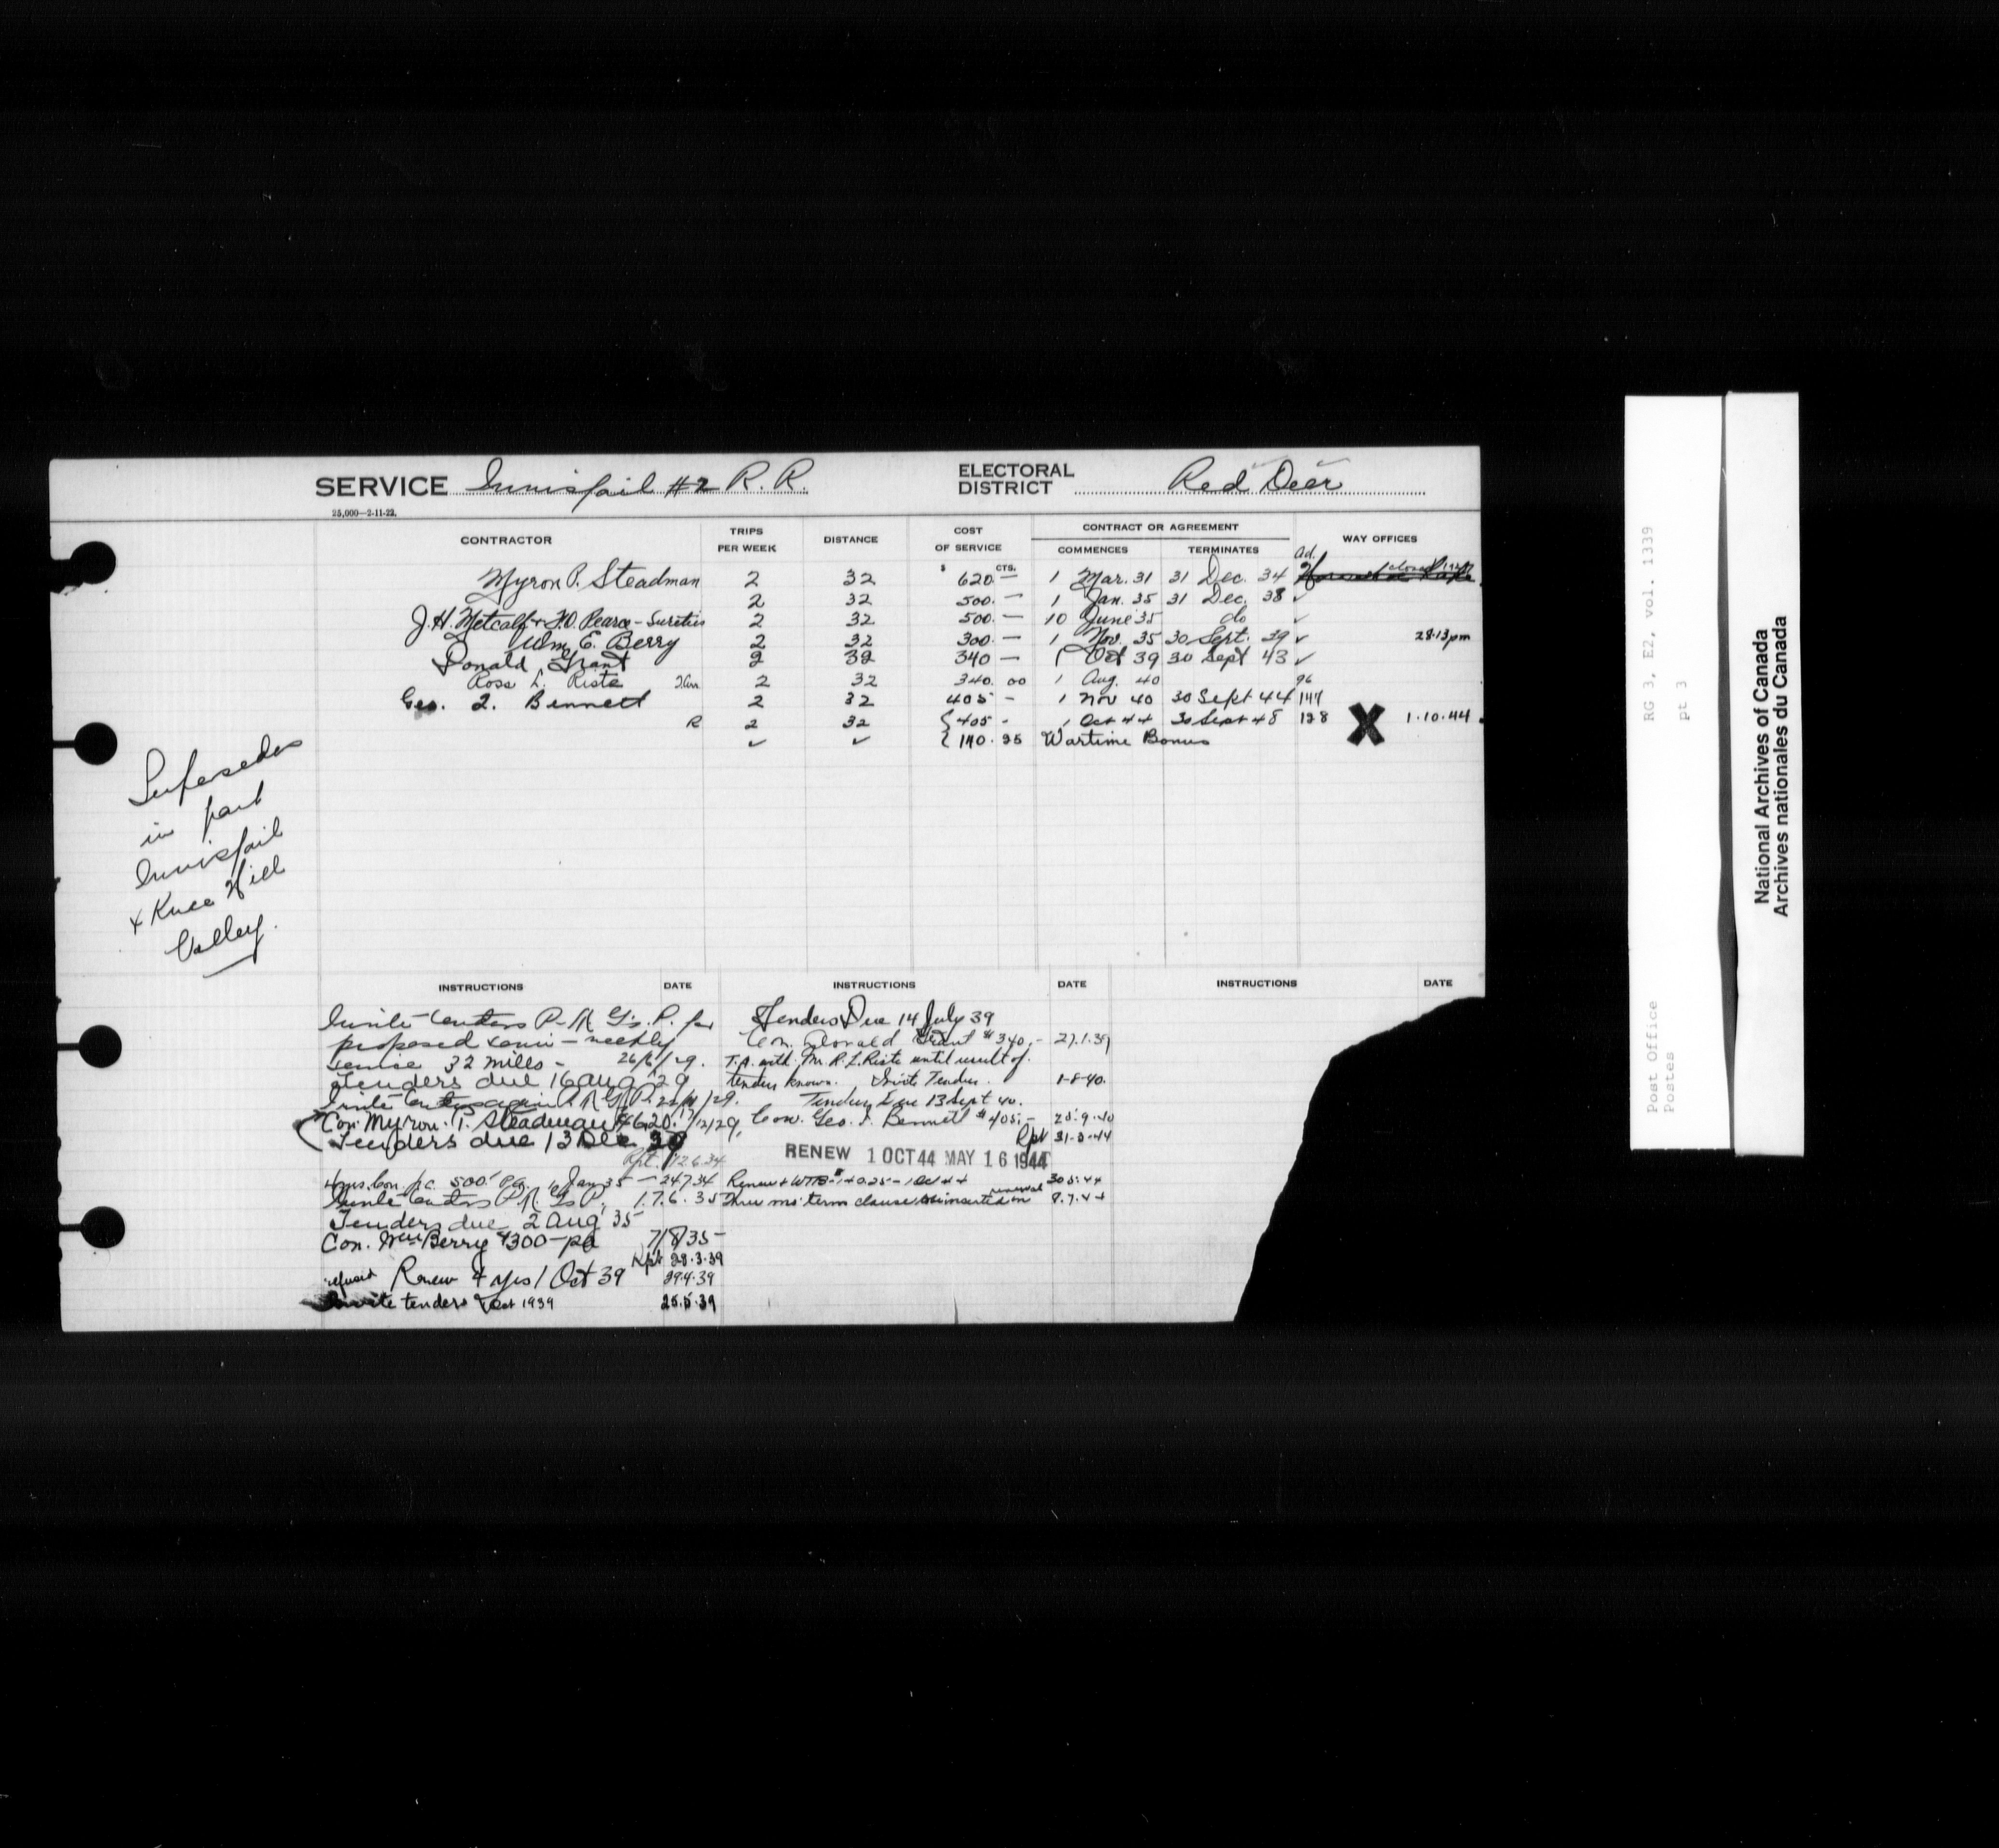 SERVICE Innisfail #2 R. R. ELECTORAL DISTRICT Red Deer
25,000—2-11-22.
CONTRACTOR TRIPS PER WEEK DISTANCE COST OF SERVICE CONTRACT OR AGREEMENT COMMENCES TERMINATES WAY OFFICES
$ CTS. Ad.
Myron P. Steadman 2 32 620.— 1 Mar. 31 31 Dec. 34 closed
2 32 500.— 1 Jan. 35 31 Dec. 38 ✓
J.H. Metcalf + F.O. Pearce - Sureties 2 32 500.— 10 June 35 do ✓
Wm E. Berry 2 32 300.— 1 Nov. 35 30 Sept. 39 ✓ 28.13pm
Donald Grant 2 32 340 — 1 Oct 39 30 Sept 43 ✓
Ross L. Riste 2 32 340.00 1 Aug. 40 96
Geo. I. Bennett 2 32 405 - 1 Nov 40 30 Sept 44 144
R 2 32 405 - 1 Oct 44 30 Sept 48 128 X 1.10.44
✓ ✓ 140.25 Wartime Bonus
Supersedes
in part
Innisfail
+ Knee Hill
Valley.
INSTRUCTIONS DATE INSTRUCTIONS DATE INSTRUCTIONS DATE
Invite tenders P-R G.P. for
proposed semi-weekly
service 32 miles - 26/6/29.
Tenders due 16 Aug 29
Invite tenders again P R G P.
Con. Myron P. Steadman $620.
Tenders due 13 Dec
Rpt. 12.6.34
4 yrs. Con. p.c. 500. pa. 1 Jan 35 — 24.7.34
Invite tenders P.R. G P. 17.6.35
Tenders due 2 Aug 35
Con. Wm Berry $300 - pa 7/8/35 -
Rpt 28.3.39
refused Renew 4 yrs 1 Oct 39 29.4.39
Invite tenders 1 Oct 1939 25.5.39
Tenders Due 14 July 39
Con. Donald Grant $340.-
T.A. with Mr. R.L. Riste until result of
tenders known. Invite Tenders. 1-8-40.
Tenders Due 13 Sept 40.
Con. Geo. I. Bennett $405.- 25.9.40
Rpt 31-3-44
RENEW 1 OCT 44 MAY 16 1944
Renew + WTB - 140.25 - 1 Oct 44 30.5.44
Three mos' term clause inserted in renewal 8.7.44
RG 3, E2, vol. 1339
pt 3
Post Office
Postes
National Archives of Canada
Archives nationales du Canada